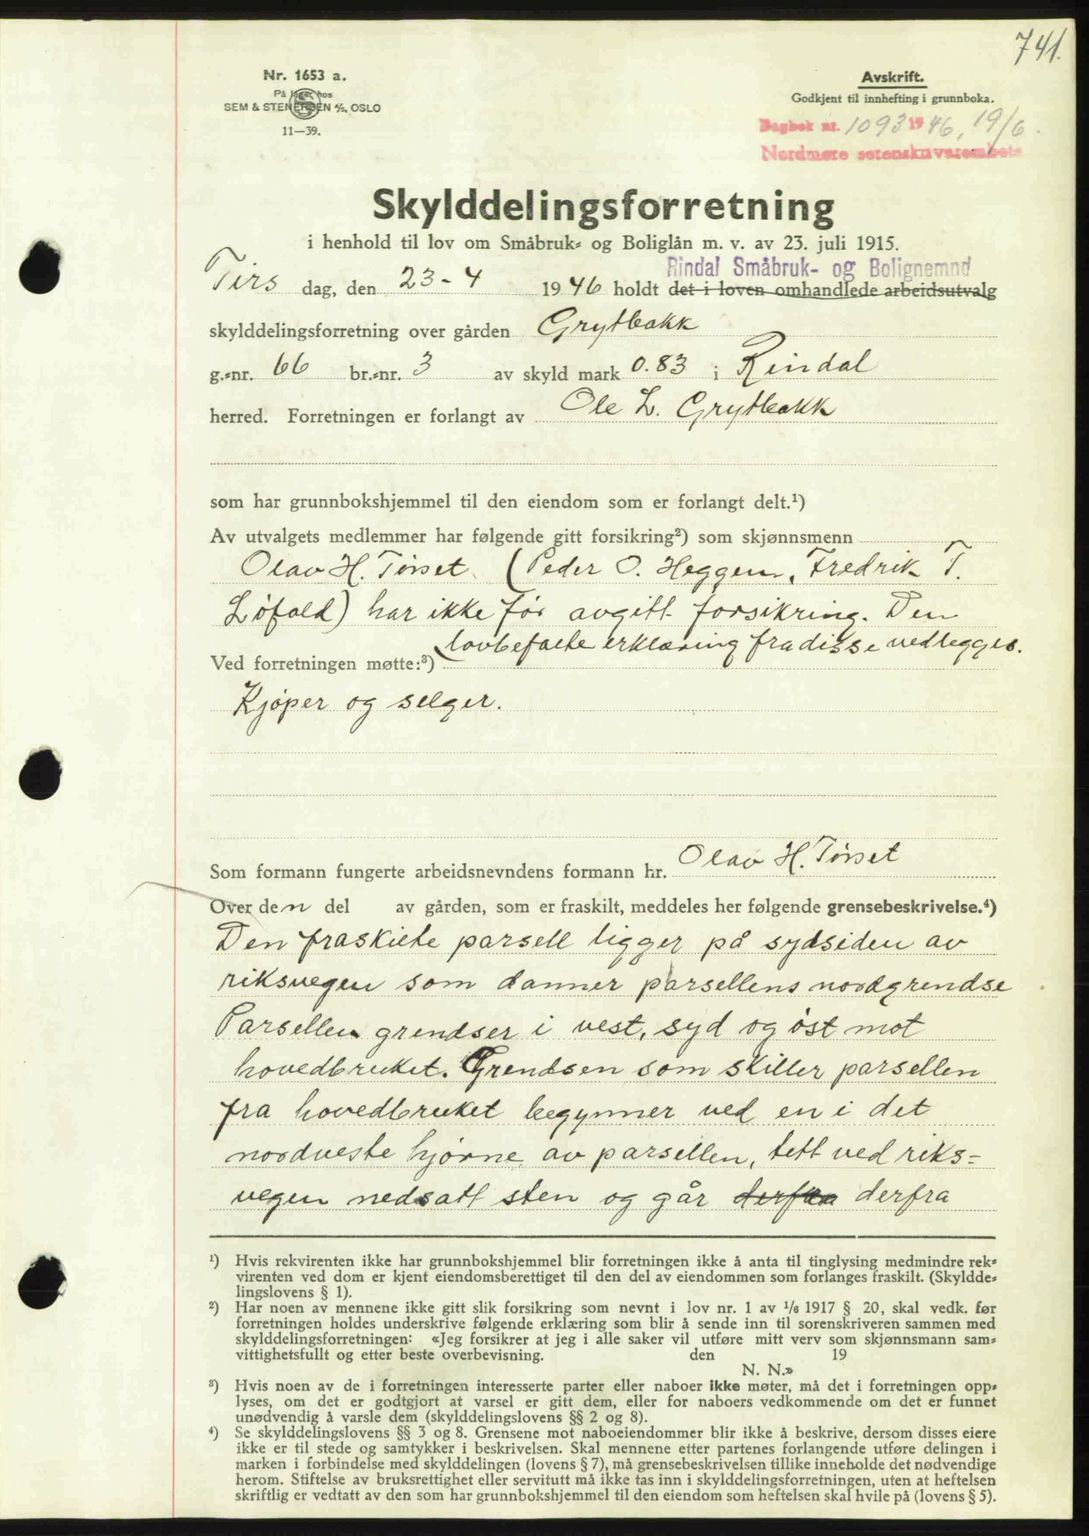 741.
Nr. 1653 a.
På lager hos
SEM & STENERSEN A/S, OSLO
11—39.
Avskrift.
Godkjent til innhefting i grunnboka.
Dagbok nr. 1093 1946, 19/6.
Nordmøre sorenskriverembete
Skylddelingsforretning
i henhold til lov om Småbruk- og Boliglån m. v. av 23. juli 1915.
Rindal Småbruk- og Bolignemnd
Tirs dag, den 23-4 1946 holdt det i loven omhandlede arbeidsutvalg
skylddelingsforretning over gården Grytbakk
g.-nr. 66 br.-nr. 3 av skyld mark 0.83 i Rindal
herred. Forretningen er forlangt av Ole L. Grytbakk
som har grunnbokshjemmel til den eiendom som er forlangt delt.¹)
Av utvalgets medlemmer har følgende gitt forsikring²) som skjønnsmenn
Olav H. Tørset (Peder O. Heggem, Fredrik T.
Løfald) har ikke før avgitt forsikring. Den
lovbefalte erklæring fra disse vedlegges.
Ved forretningen møtte:³)
Kjøper og selger.
Som formann fungerte arbeidsnevndens formann hr. Olav H. Tørset
Over den del av gården, som er fraskilt, meddeles her følgende grensebeskrivelse.⁴)
Den fraskilte parsell ligger på sydsiden av
riksvegen som danner parsellens nordgrendse
Parsellen grendser i vest, syd og øst mot
hovedbruket. Grendsen som skiller parsellen
fra hovedbruket begynner ved en i det
nordveste hjørne av parsellen, tett ved riks=
vegen nedsatt sten og går derfra derfra
¹) Hvis rekvirenten ikke har grunnbokshjemmel blir forretningen ikke å anta til tinglysing medmindre rek-
virenten ved dom er kjent eiendomsberettiget til den del av eiendommen som forlanges fraskilt. (Skyldde-
lingslovens § 1).
²) Har noen av mennene ikke gitt slik forsikring som nevnt i lov nr. 1 av 1/6 1917 § 20, skal vedk. før
forretningen holdes underskrive følgende erklæring som blir å sende inn til sorenskriveren sammen med
skylddelingsforretningen: «Jeg forsikrer at jeg i alle saker vil utføre mitt verv som skjønnsmann sam-
vittighetsfullt og etter beste overbevisning. den 19
N. N.»
³) Hvis noen av de i forretningen interesserte parter eller naboer ikke møter, må det i forretningen opp-
lyses, om det er godtgjort at varsel er gitt dem, eller for naboers vedkommende om det er funnet
unødvendig å varsle dem (skylddelingslovens §§ 2 og 8).
⁴) Se skylddelingslovens §§ 3 og 8. Grensene mot naboeiendommer blir ikke å beskrive, dersom disses eiere
ikke er til stede og samtykker i beskrivelsen. Skal mennene etter partenes forlangende utføre delingen i
marken i forbindelse med skylddelingen (lovens § 7), må grensebeskrivelsen tillike inneholde det nødvendige
herom. Stiftelse av bruksrettighet eller servitutt må ikke tas inn i skylddelingsforretningen, uten at heftelsen
skriftlig er vedtatt av den som har grunnbokshjemmel til den eiendom som heftelsen skal hvile på (lovens § 5).